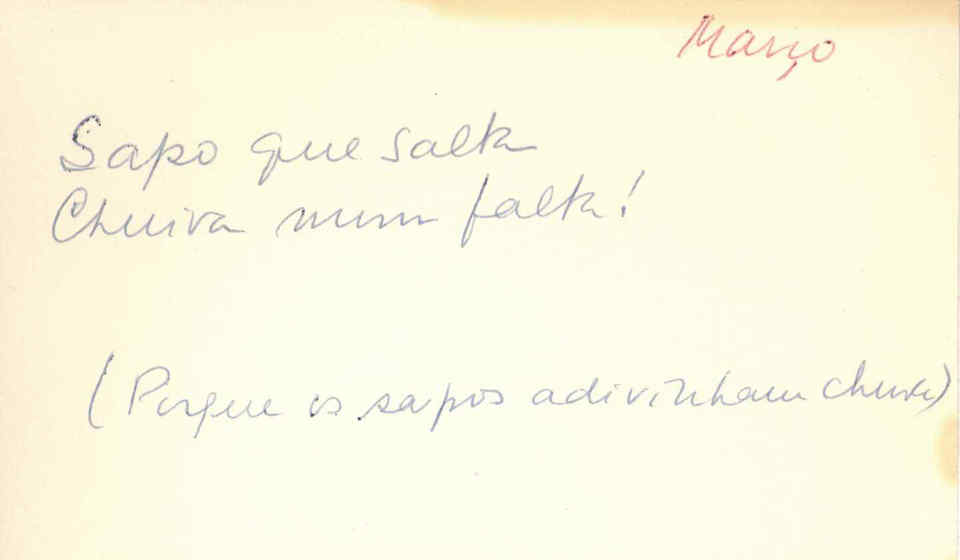 Março
Sapo que salta
Chuiva num falta!
(Porque os sapos adivinham chuva)